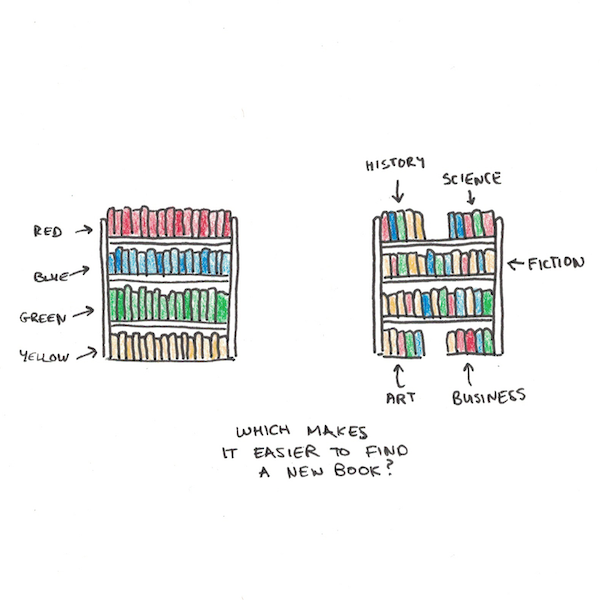 RED
BLUE
GREEN
YELLOW
HISTORY
SCIENCE
FICTION
ART
BUSINESS
WHICH MAKES
IT EASIER TO FIND
A NEW BOOK?